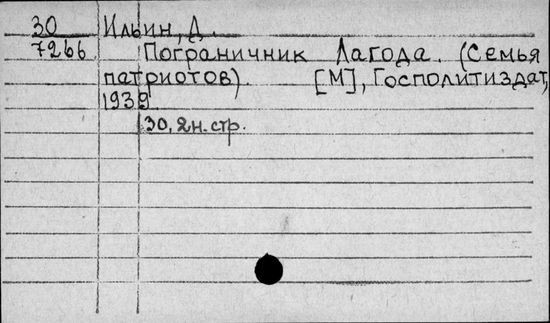 30 Ильин, Д.
7266 Пограничник Лагода. (Семья
патриотов). [М], Госполитиздат,
1939.
30, 2н. стр.